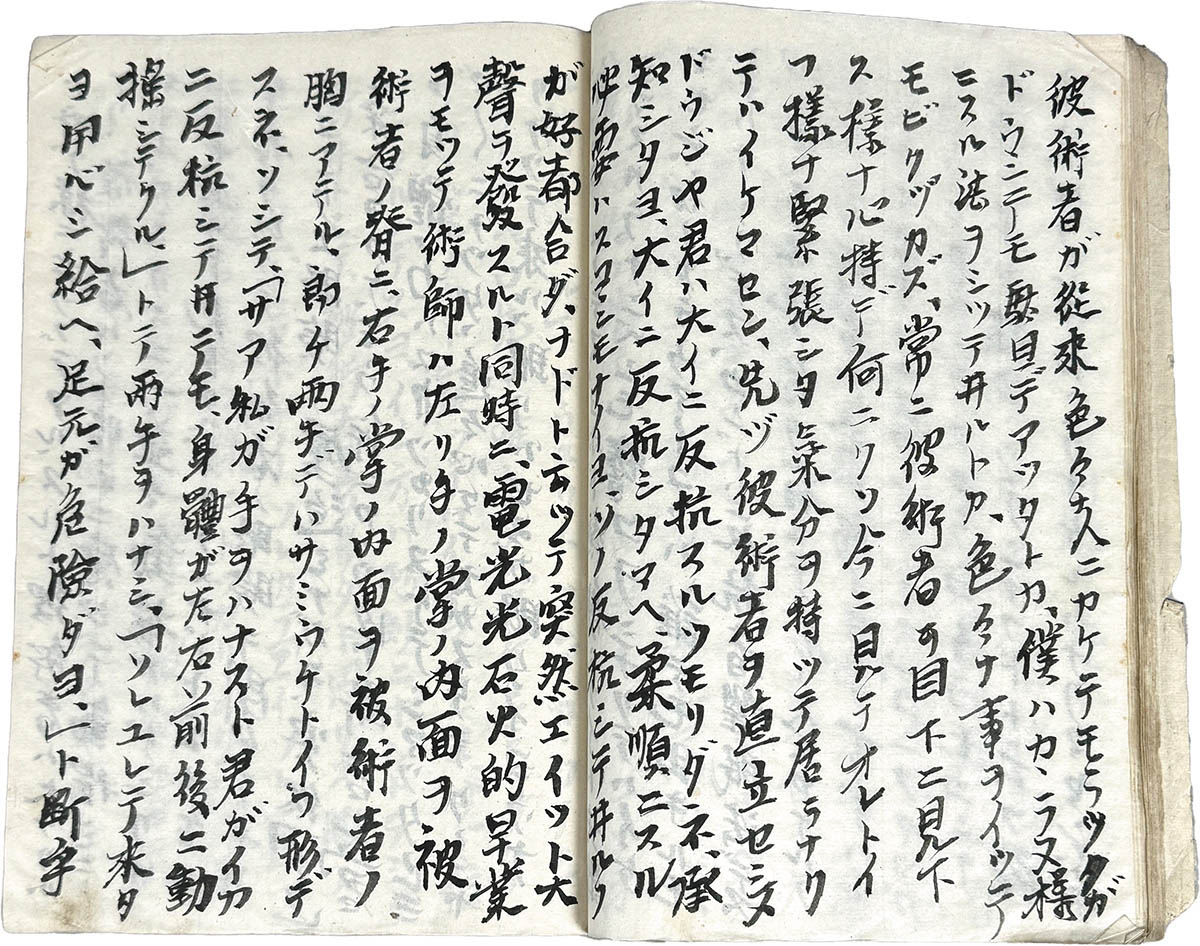 彼術者が従来色々ナ人ニカケテモラッタガ
ドウニーモ駄目デアッタトカ、僕ハカヽラヌ様
ニスル法ヲシッテ井ルトカ、色々ナ事ヲイッテ
モビクヅカズ、常ニ彼術者の目下ニ見下
ス様ナ心持デ何ニクソ今ニ見テオレトイ
フ様ナ緊張シタ気分ヲ持ッテ居ラナク
テハイケマセン、先ヅ彼術者ヲ直立セシメ
ドウジヤ君ハ大イニ反抗スルツモリダネ、承
知シタヨ、大イニ反抗シタマヘ、柔順ニスル
必要ハスコシモナイヨ、ソノ反抗シテ井ルノ
が好都合ダ、ナドト云ッテ突然エイット大
聲ヲ發スルト同時ニ、電光光石火的早業
ヲモッテ術師ハ左リ手ノ掌ノ内面ヲ被
術者ノ脊ニ、右手ノ掌ノ内面ヲ被術者ノ
胸ニアテル、即チ両手デハサミウケトイフ形デ
スネ、ソシテ、「サア私ガ手ヲハナスト君がイカ
ニ反抗シテ井ニテモ、身體が左右前後ニ動
揺シテクル」トテ両手ヲハナシ、「ソレユレテ来タ
ヨ用心シ給ヘ、足元が危險ダヨ、」ト断乎